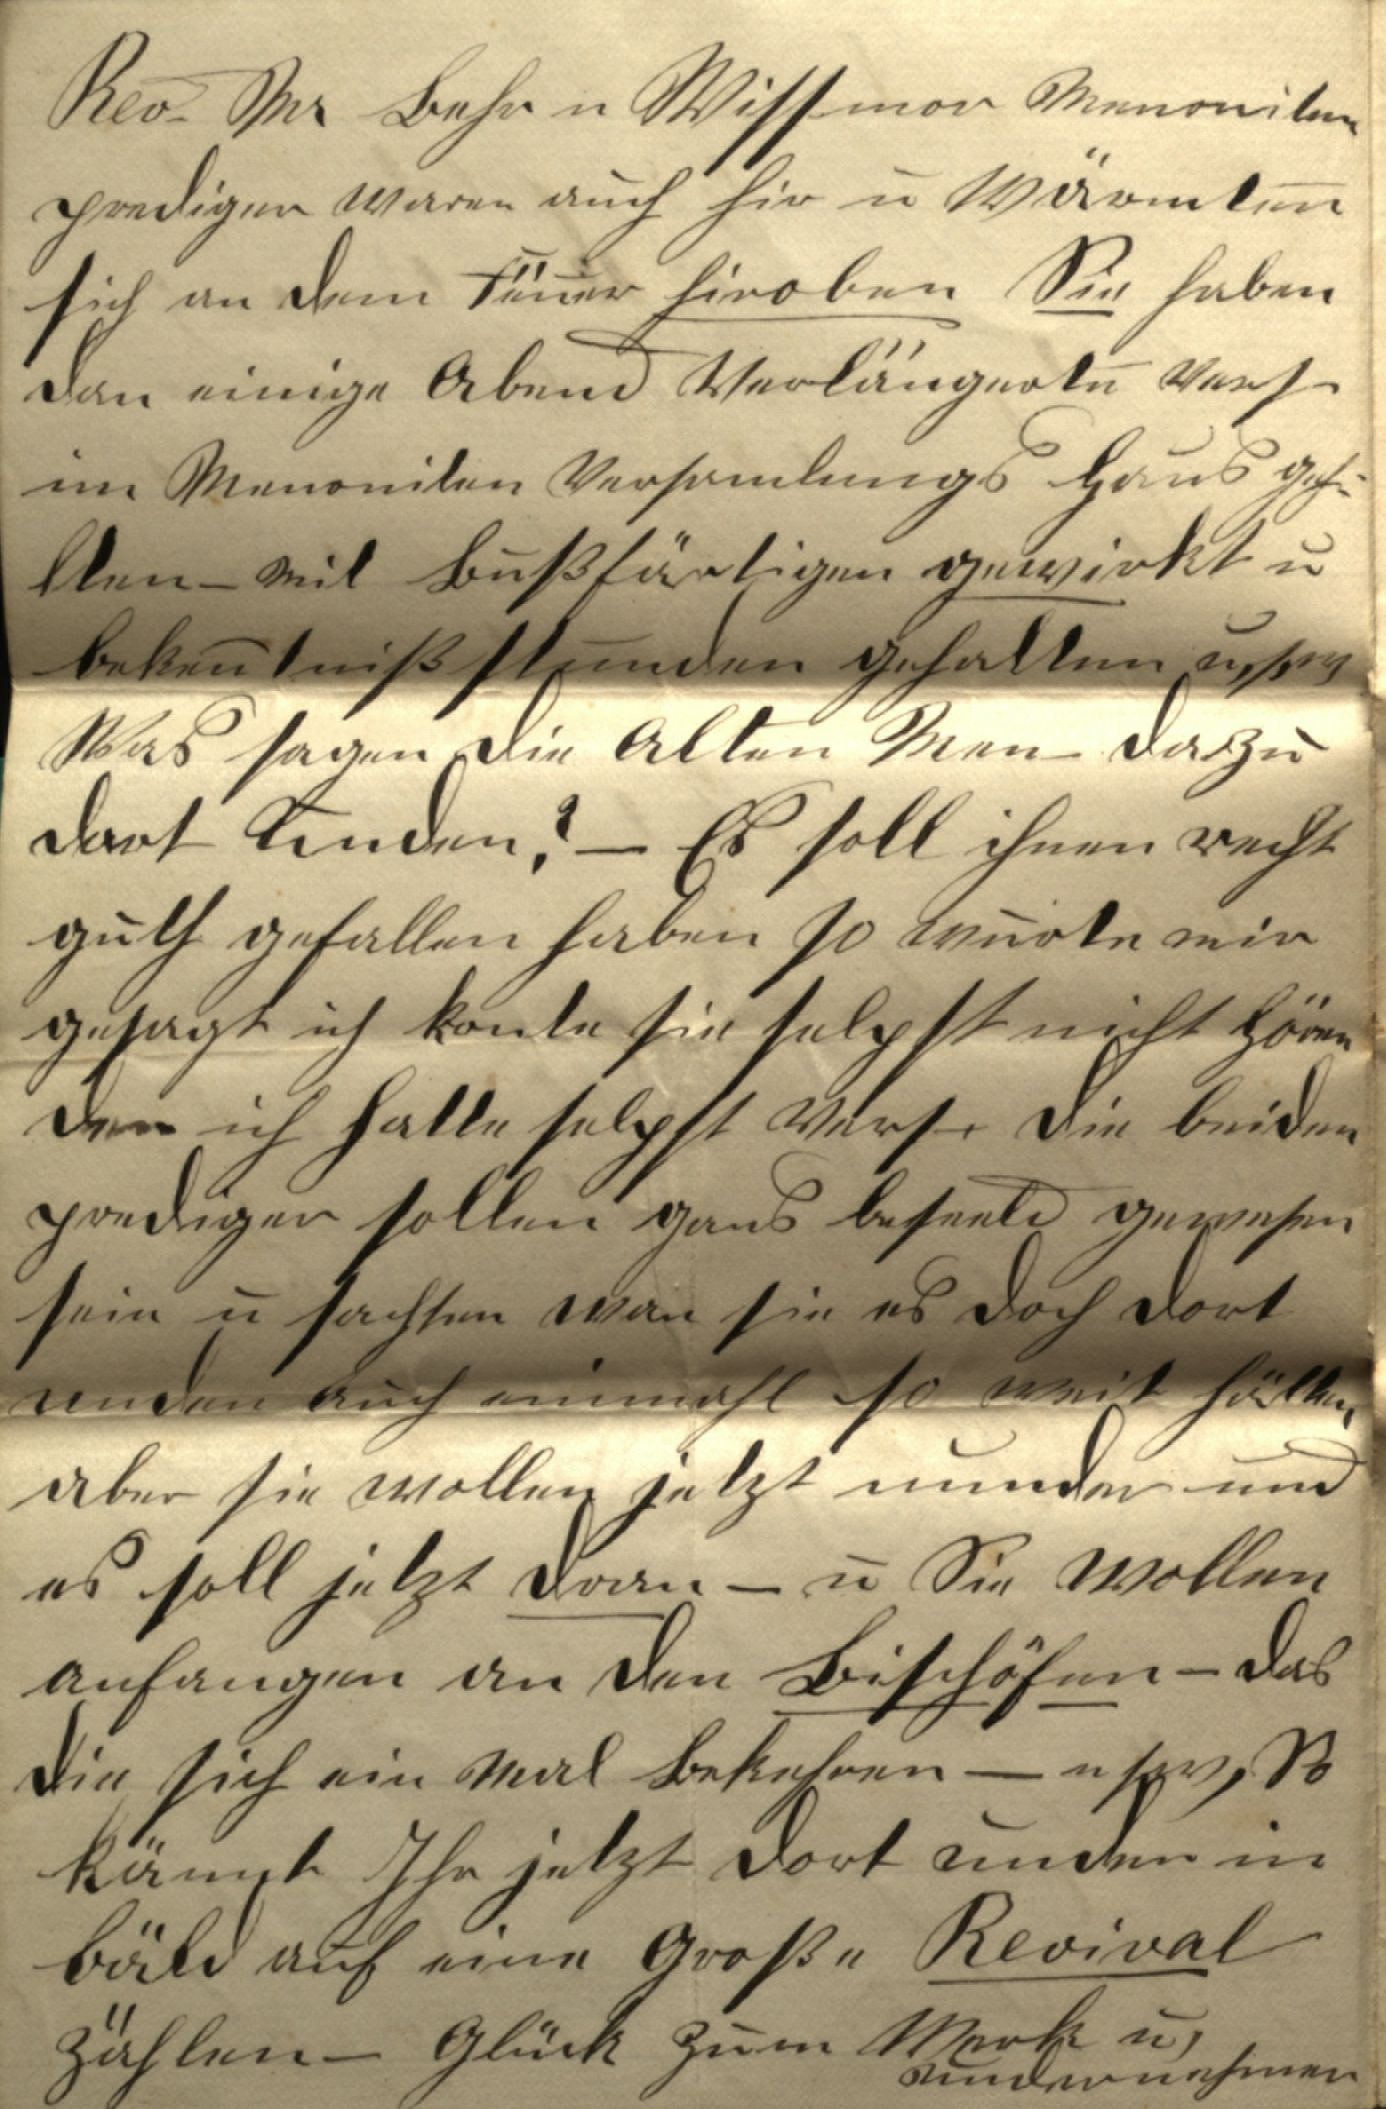 Rev. Mr Behr u Wissmor Menoniten
prediger waren auch hir u Wärmten
sich an dem Feuer hiroben Sie haben
dan einige Abend Verlängerte Vers-
im Menoniten Versamlungs Haus geha-
lten - mit Bußfärtigen gewirkt u
bekentniß stunden gehalten u,sw
Was sagen die Alten Men- dazu
dort Unden? — Es soll ihnen recht
guth gefallen haben so wurte mir
gesagt ich konte sie selpst nicht Hören
den ich hatte selpst Vers- die beiden
prediger sollen gans beseeld gewesen
sein u sachten wan sie es doch dort
unden auch einmahl so weit hätten,
aber sie wollen jetzt nunder und
es soll jetzt dran — u Sie Wollen
anfangen an den Bischöfen — das
die sich ein Mal Bekehren — usw, So
kännt Ihr jetzt dort unden in
bäld auf eine Große Revival
zählen — Glück zum Werk u,
undernehmen